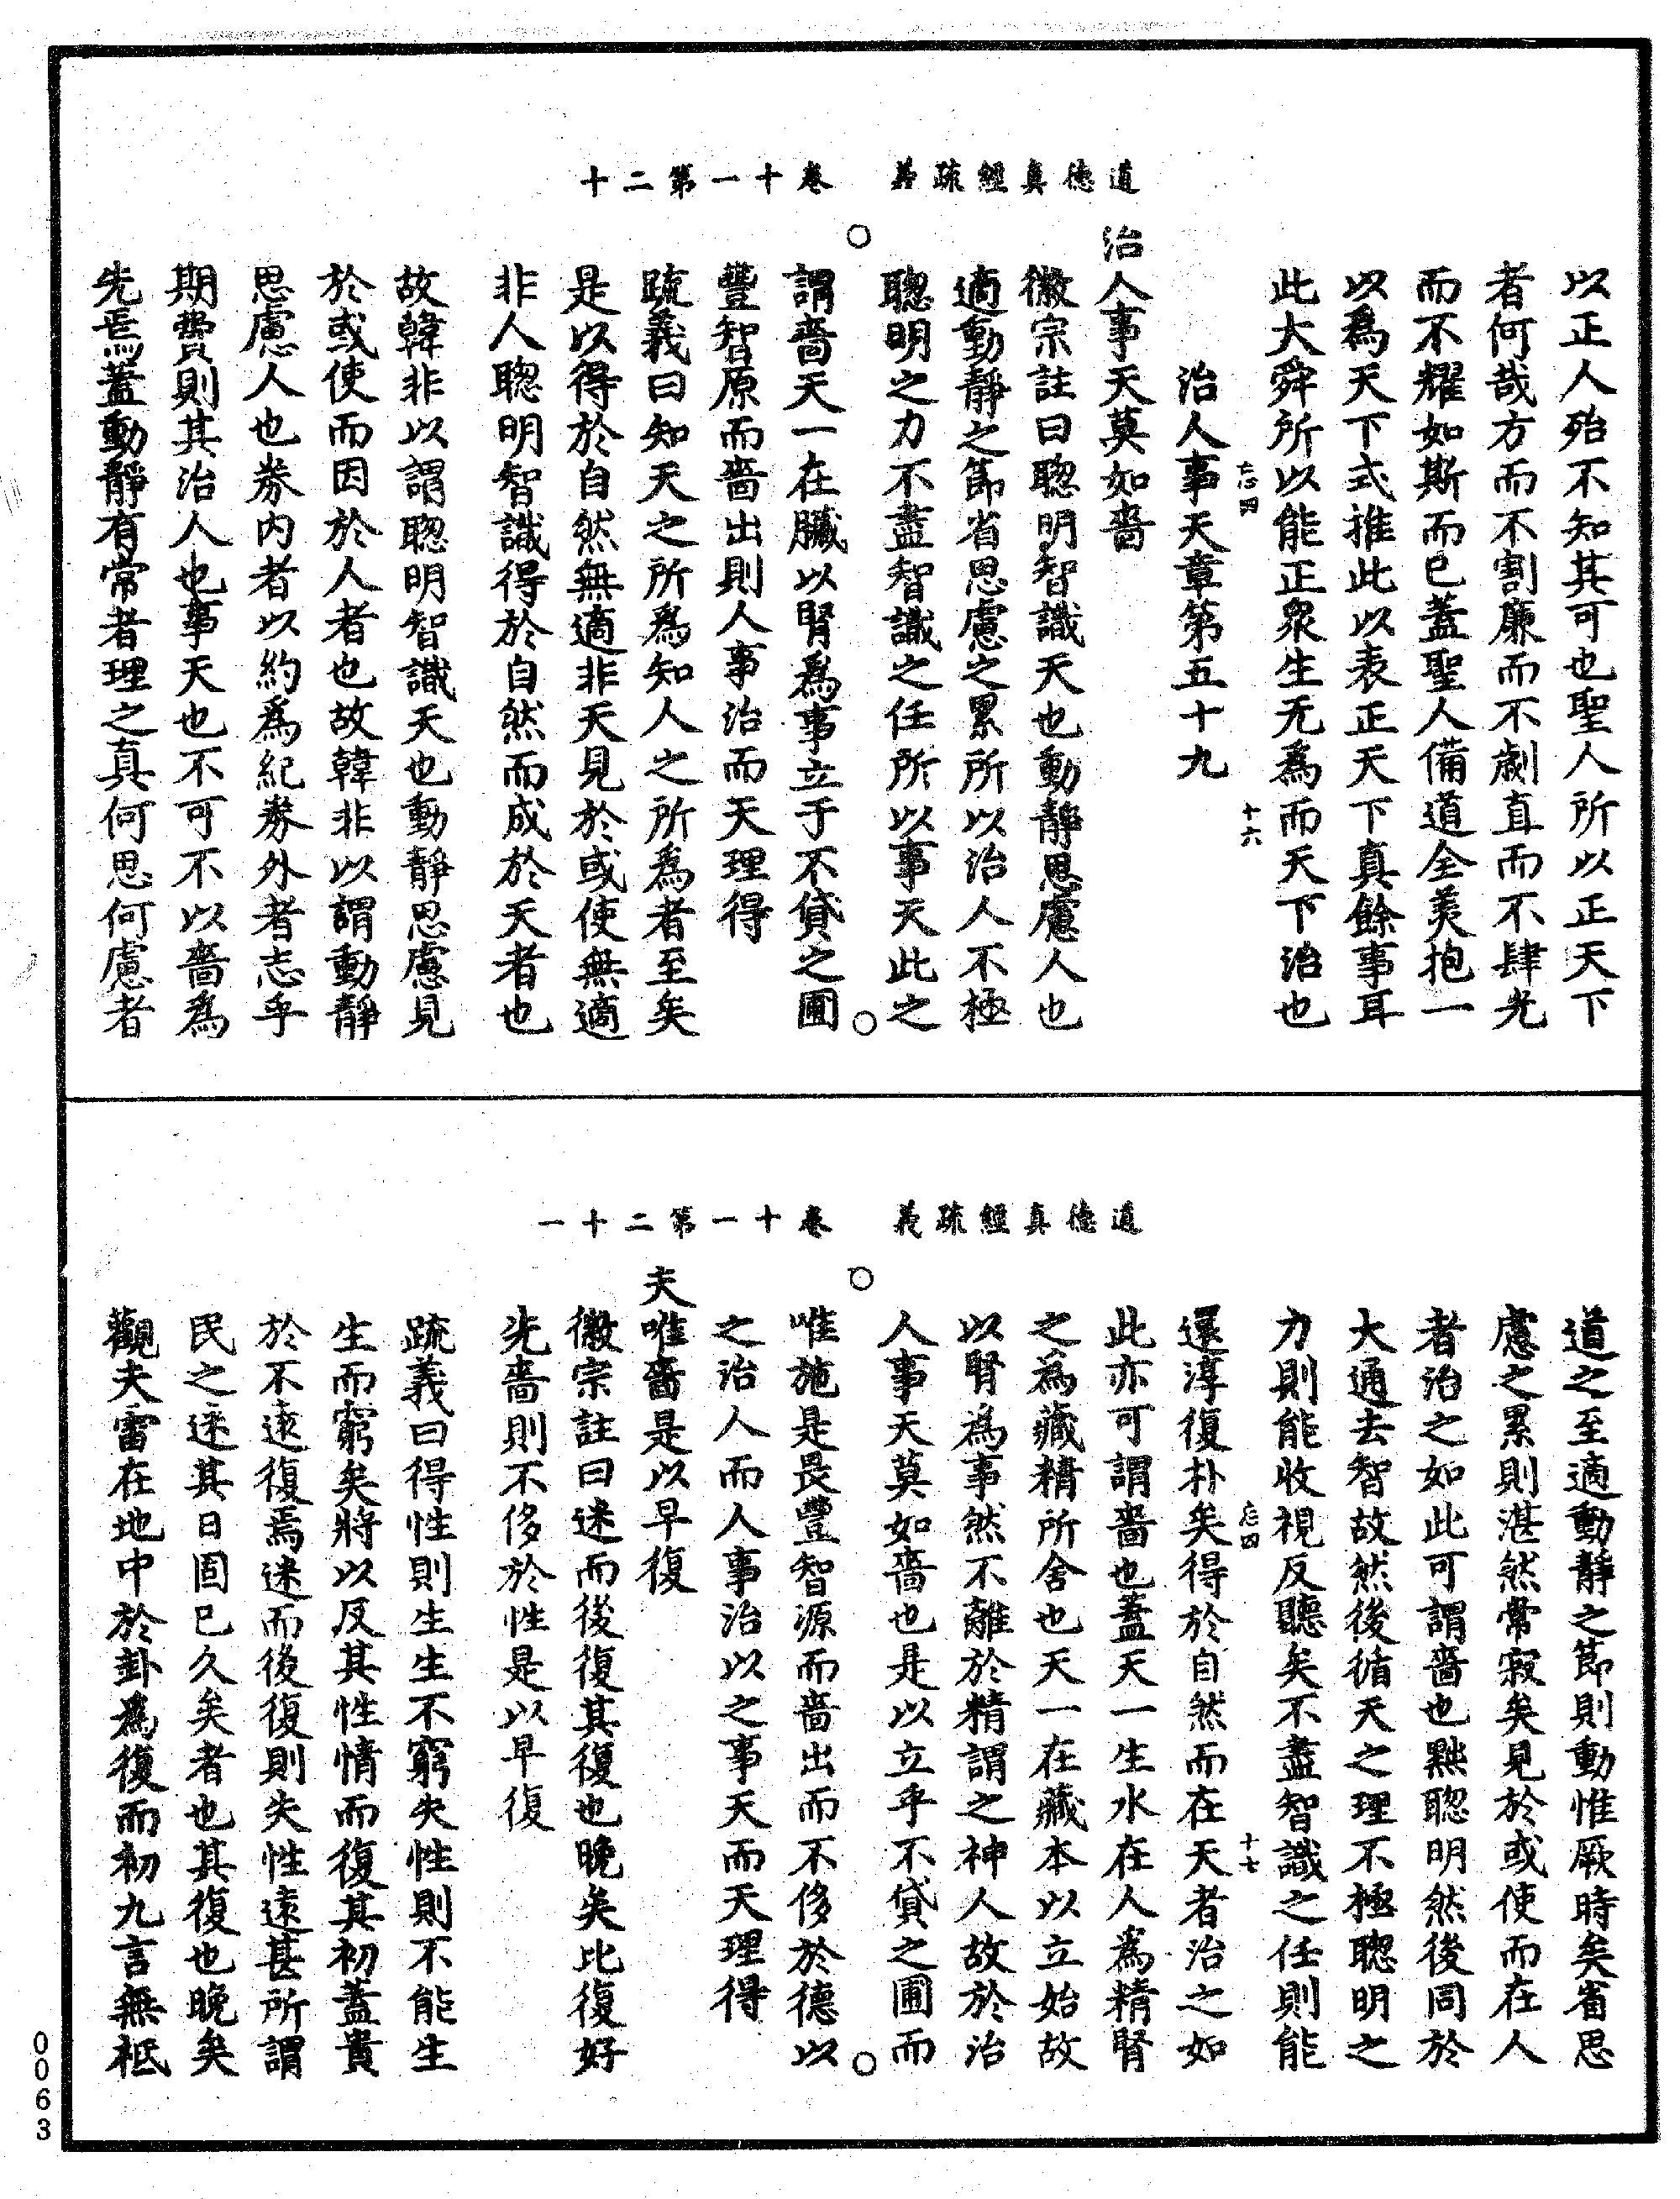 道德真經疏義　卷十一第二十
以正人殆不知其可也聖人所以正天下
者何哉方而不割廉而不劌直而不肆光
而不耀如斯而已蓋聖人備道全美抱一
以為天下式推此以表正天下真餘事耳
此大舜所以能正衆生无為而天下治也
忘四　十六
治人事天章第五十九
治人事天莫如嗇
徽宗註曰聦明智識天也動靜思慮人也
適動靜之節省思慮之累所以治人不極
聦明之力不盡智識之任所以事天此之
謂嗇天一在臟以腎為事立于不貸之圃
豐智原而嗇出則人事治而天理得
疏義曰知天之所為知人之所為者至矣
是以得於自然無適非天見於或使無適
非人聦明智識得於自然而成於天者也
故韓非以謂聦明智識天也動靜思慮見
於或使而因於人者也故韓非以謂動靜
思慮人也券內者以約為紀券外者志乎
期費則其治人也事天也不可不以嗇為
先焉蓋動靜有常者理之真何思何慮者
道德真經疏義　卷十一第二十一
道之至適動靜之節則動惟厥時矣省思
慮之累則湛然常寂矣見於或使而在人
者治之如此可謂嗇也黜聦明然後同於
大通去智故然後循天之理不極聦明之
力則能收視反聽矣不盡智識之任則能
忘四　十七
還淳復朴矣得於自然而在天者治之如
此亦可謂嗇也蓋天一生水在人為精腎
之為藏精所舍也天一在藏本以立始故
以腎為事然不離於精謂之神人故於治
人事天莫如嗇也是以立乎不貸之圃而
唯施是畏豐智源而嗇出而不侈於德以
之治人而人事治以之事天而天理得
夫唯嗇是以早復
徽宗註曰迷而後復其復也晚矣比復好
先嗇則不侈於性是以早復
疏義曰得性則生生不窮失性則不能生
生而窮矣將以反其性情而復其初蓋貴
於不遠復焉迷而後復則失性遠甚所謂
民之迷其日固已久矣者也其復也晚矣
觀夫雷在地中於卦為復而初九言無袛
0063